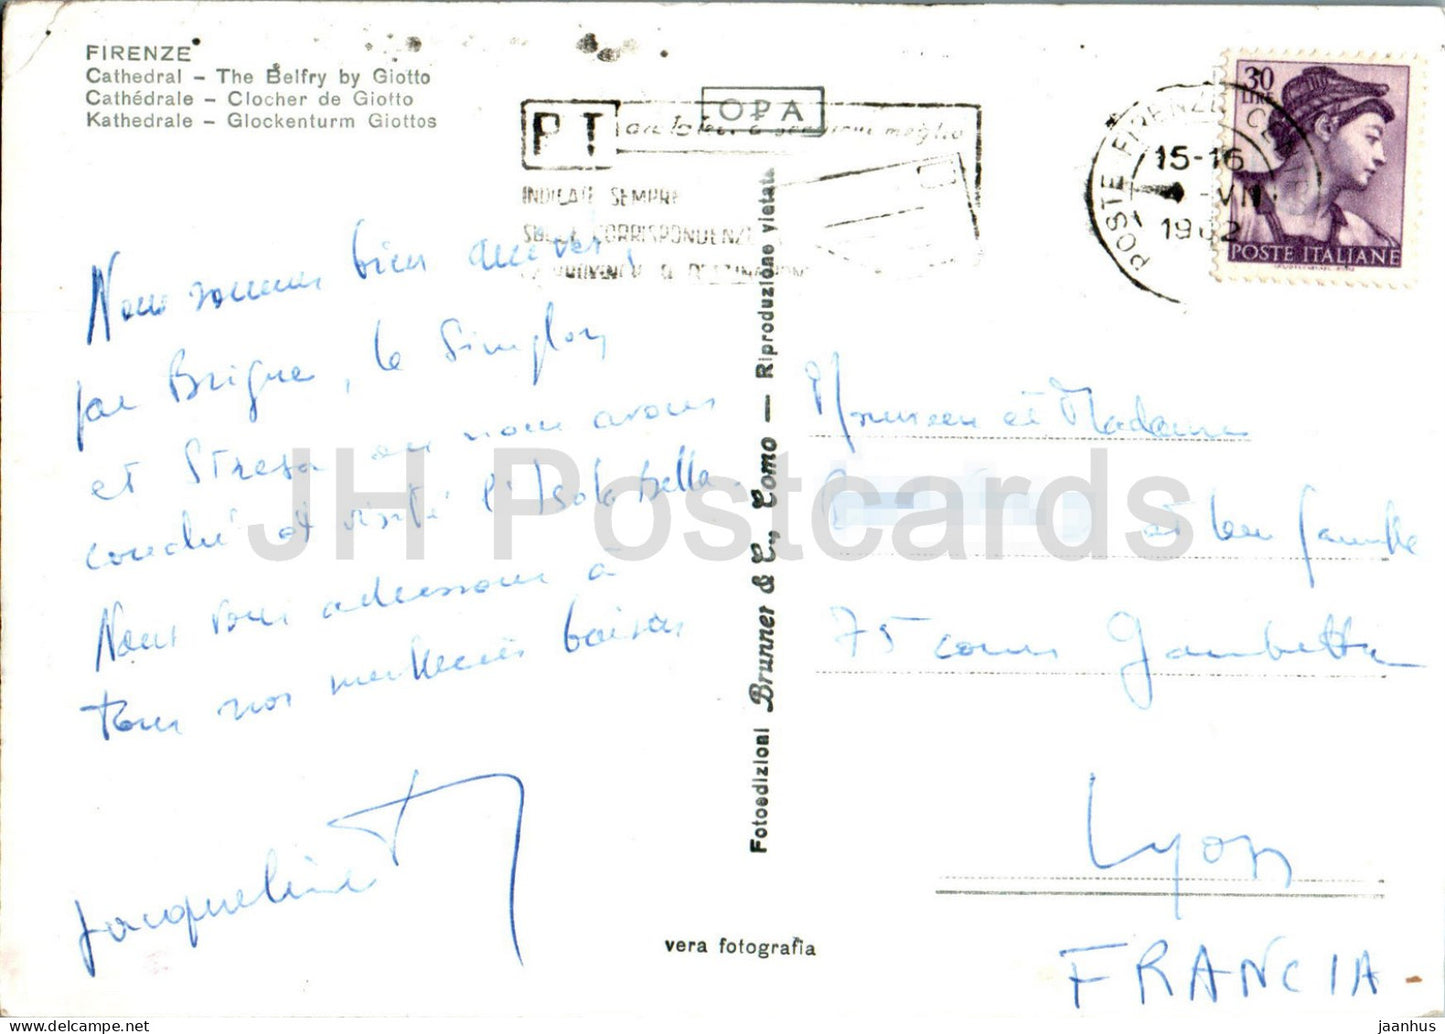 FIRENZE
Cathedral – The Belfry by Giotto
Cathédrale – Clocher de Giotto
Kathedrale – Glockenturm Giottos
OPA
PT
meglio
INDICATE SEMPRE
SULLE CORRISPONDENZE
POSTE FIRENZE
15-16
-VII
1962
30
LIRE
POSTE ITALIANE
Nous sommes bien arrivés,
par Brigue, le Simplon
et Stresa où nous avons
couché et visité l'Isola bella.
Nous vous adressons à
tous nos meilleurs baisers
Jacqueline
Fotoedizioni Brunner & C., Como — Riproduzione vietata
vera fotografia
Monsieur et Madame
et leur famille
75 cours Gambetta
Lyon
FRANCIA
JH Postcards
jaanhus@delcampe.net